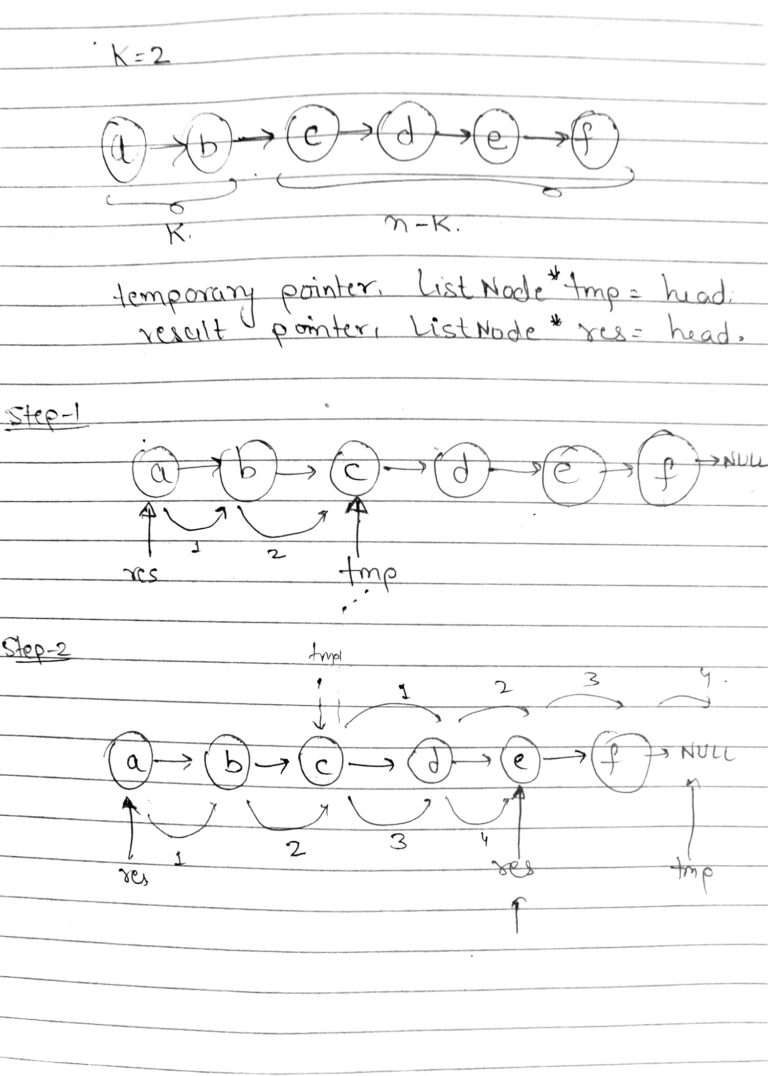 K=2
a b c d e f
K. n-K.
temporary pointer, ListNode* tmp = head.
result pointer, ListNode* res = head.
Step-1
a b c d e f NULL
1 2
res tmp
Step-2
tmp
1 2 3 4.
a b c d e f NULL
1 2 3 4
res res tmp